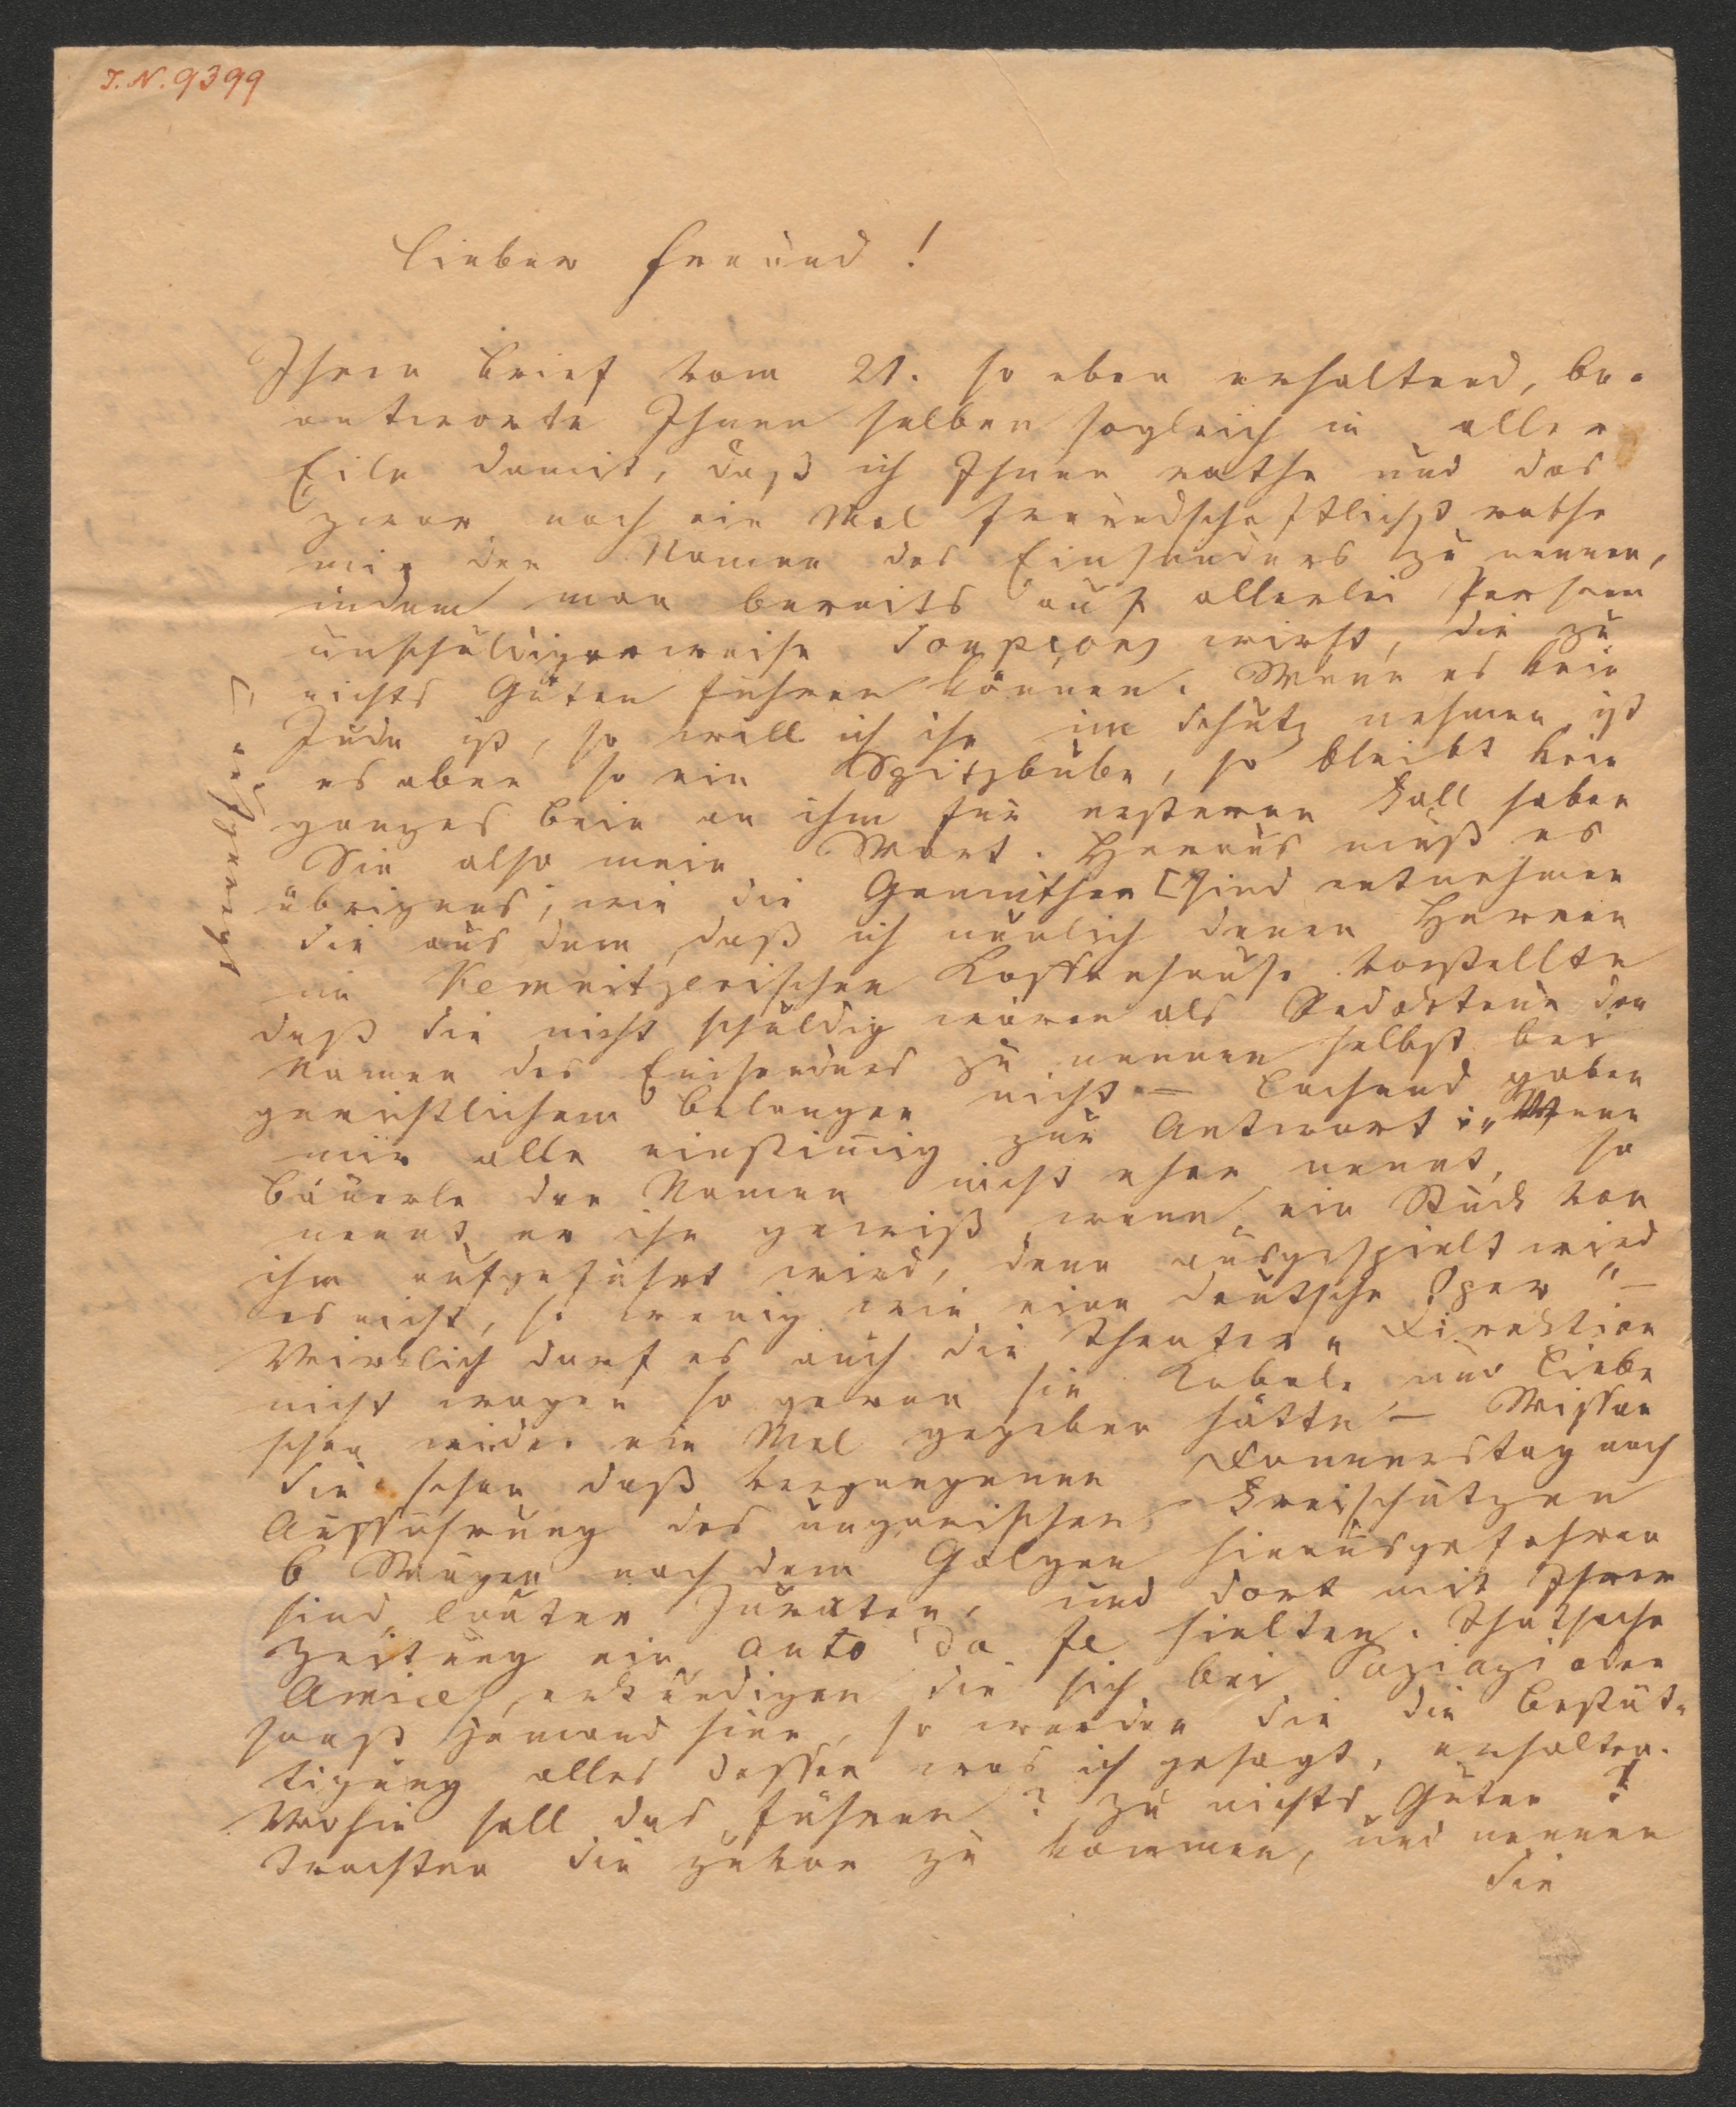 I. N. 9399
Lieber Freund!
Ihren Brief vom 21. so eben erhaltend, be-
antworte Ihnen selben sogleich in aller
Eile damit, daß ich Ihnen rathe und das
zwar noch ein Mal freundschaftlichst rathe
mir den Namen des Einsenders zu nennen,
indem man bereits auf allerlei Personen
unschuldigerweise Soupçons wirft, die zu
nichts Guten führen können. Wenn es kein
Jude ist, so will ich ihn in Schutz nehmen, ist
es aber so ein Spitzbube, so bleibt kein
ganzes Bein an ihm für ersteren Fall haben
Sie also mein Wort. Heraus muß es
übrigens; wie die Gemüther [sind entnehmen
Sie aus dem, daß ich neulich denen Herren
im Kemnitzerischen Kaffeehause vorstellte
daß Sie nicht schuldig wären als Redakteur den
Namen des Einsenders zu nennen selbst bei
gerichtlichem Belangen nicht – Lachend gaben
mir alle einstimig zur Antwort: „Wenn
Bäuerle den Namen nicht eher nennt, so
nennt er ihn gewiß wenn ein Stück von
ihm aufgeführt wird, denn ausgespielt wird
es nicht, so wenig wie eine deutsche Oper“ –
Wirklich darf es auch die Theater-Direktion
nicht wagen so gerne sie Kabale und Liebe
schon wieder ein Mal gegeben hätte – Wissen
Sie schon daß vergangenen Donnerstag nach
Aufführung des ungarischen Freischützen
6 Wägen nach dem Galgen hinausgefahren
sind, lauter Juraten, und dort mit Ihrer
Zeitung ein auto da fe hielten. Thatsache
Amice, erkundigen Sie sich bei oder
sonst Jemand hier, so werden Sie die Bestät-
tigung alles dessen was ich gesagt, erhalten.
Wohin soll das führen? zu nichts Guten!
Trachten Sie zuvor zu kommen, und nennen
Sie
[aufgeregt